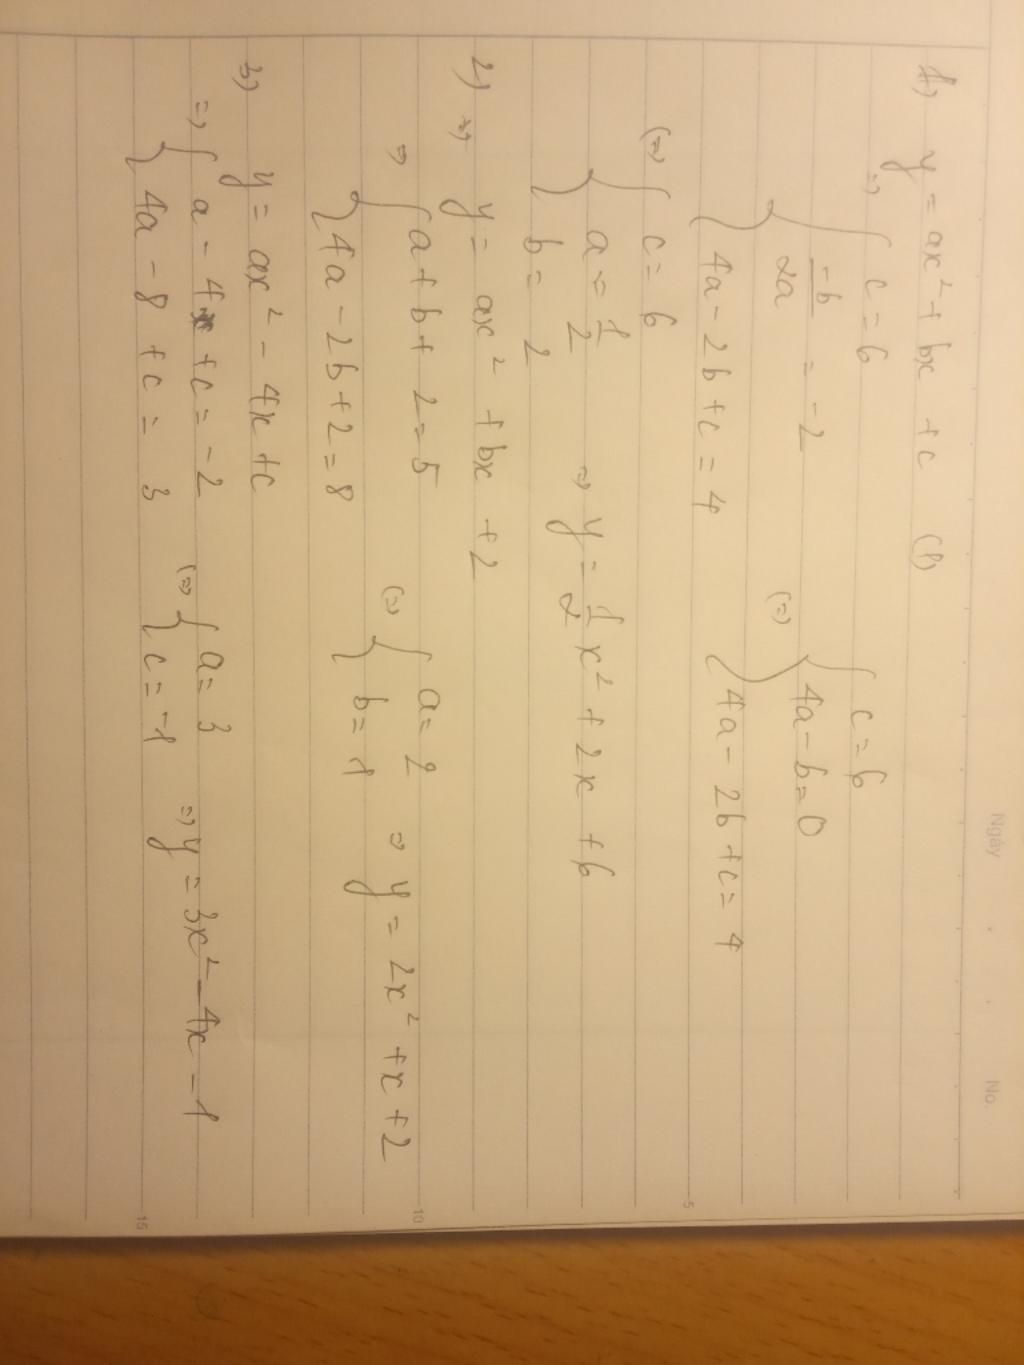 Ngày
No.
1) y = ax² + bx + c (P)
=> { c = 6
-b/2a = -2
4a - 2b + c = 4
(=) { c = 6
4a - b = 0
4a - 2b + c = 4
(=) { c = 6
a = 1/2
b = 2
=> y = 1/2 x² + 2x + 6
5
2) => y = ax² + bx + 2
=> { a + b + 2 = 5
4a - 2b + 2 = 8
(=) { a = 2
b = 1
=> y = 2x² + x + 2
10
3) y = ax² - 4x + c
=> { a - 4 + c = -2
4a - 8 + c = 3
(=) { a = 3
c = -1
=> y = 3x² - 4x - 1
15